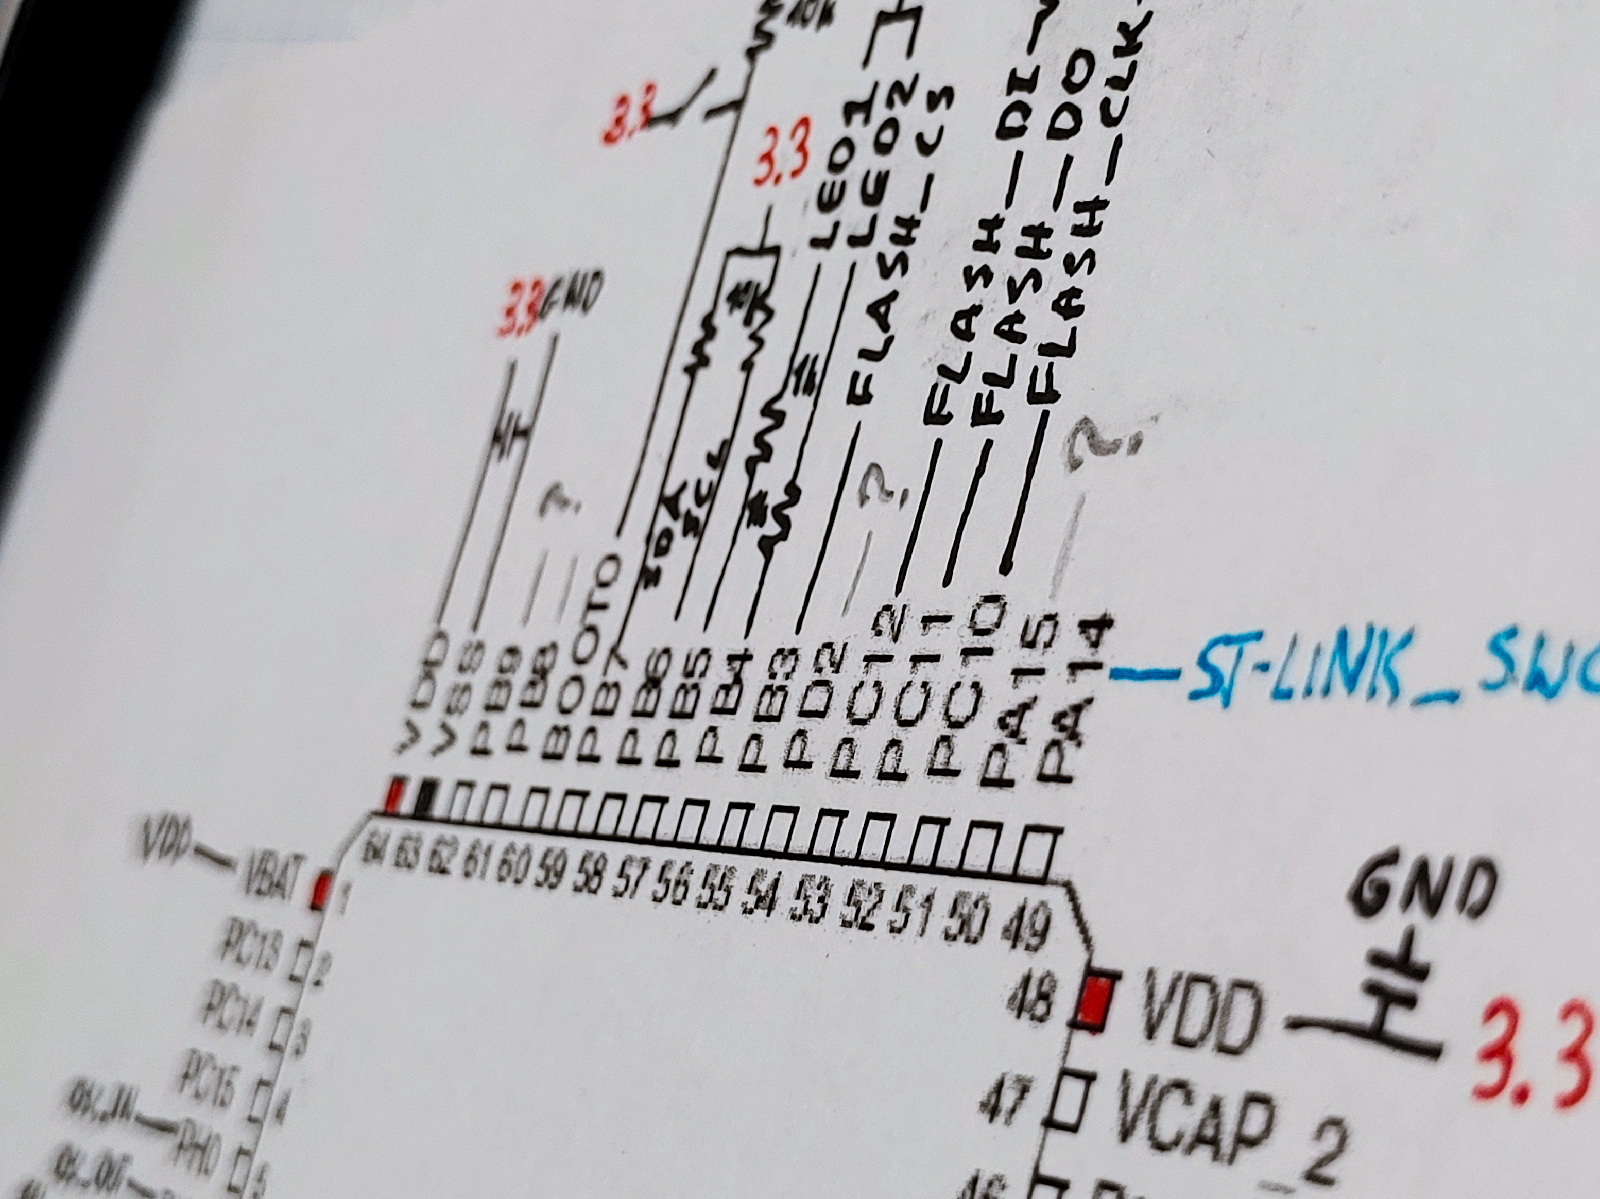 10k
3.3
3.3
3.3
GND
LED1
LED2
FLASH_CS
FLASH_DI
FLASH_DO
FLASH_CLK
1k
SDA
SCL
?
?
?
VDD
VSS
PB9
PB8
BOOT0
PB7
PB6
PB5
PB4
PB3
PD2
PC12
PC11
PC10
PA15
PA14
ST-LINK_SWC
64 63 62 61 60 59 58 57 56 55 54 53 52 51 50 49
VDD VBAT 1
PC13 2
PC14 3
PC15 4
PH0 5
GND
48 VDD
3.3
47 VCAP_2
46